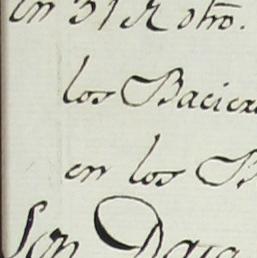 en 31 R otro.
los Baciero
en los B
Son Data